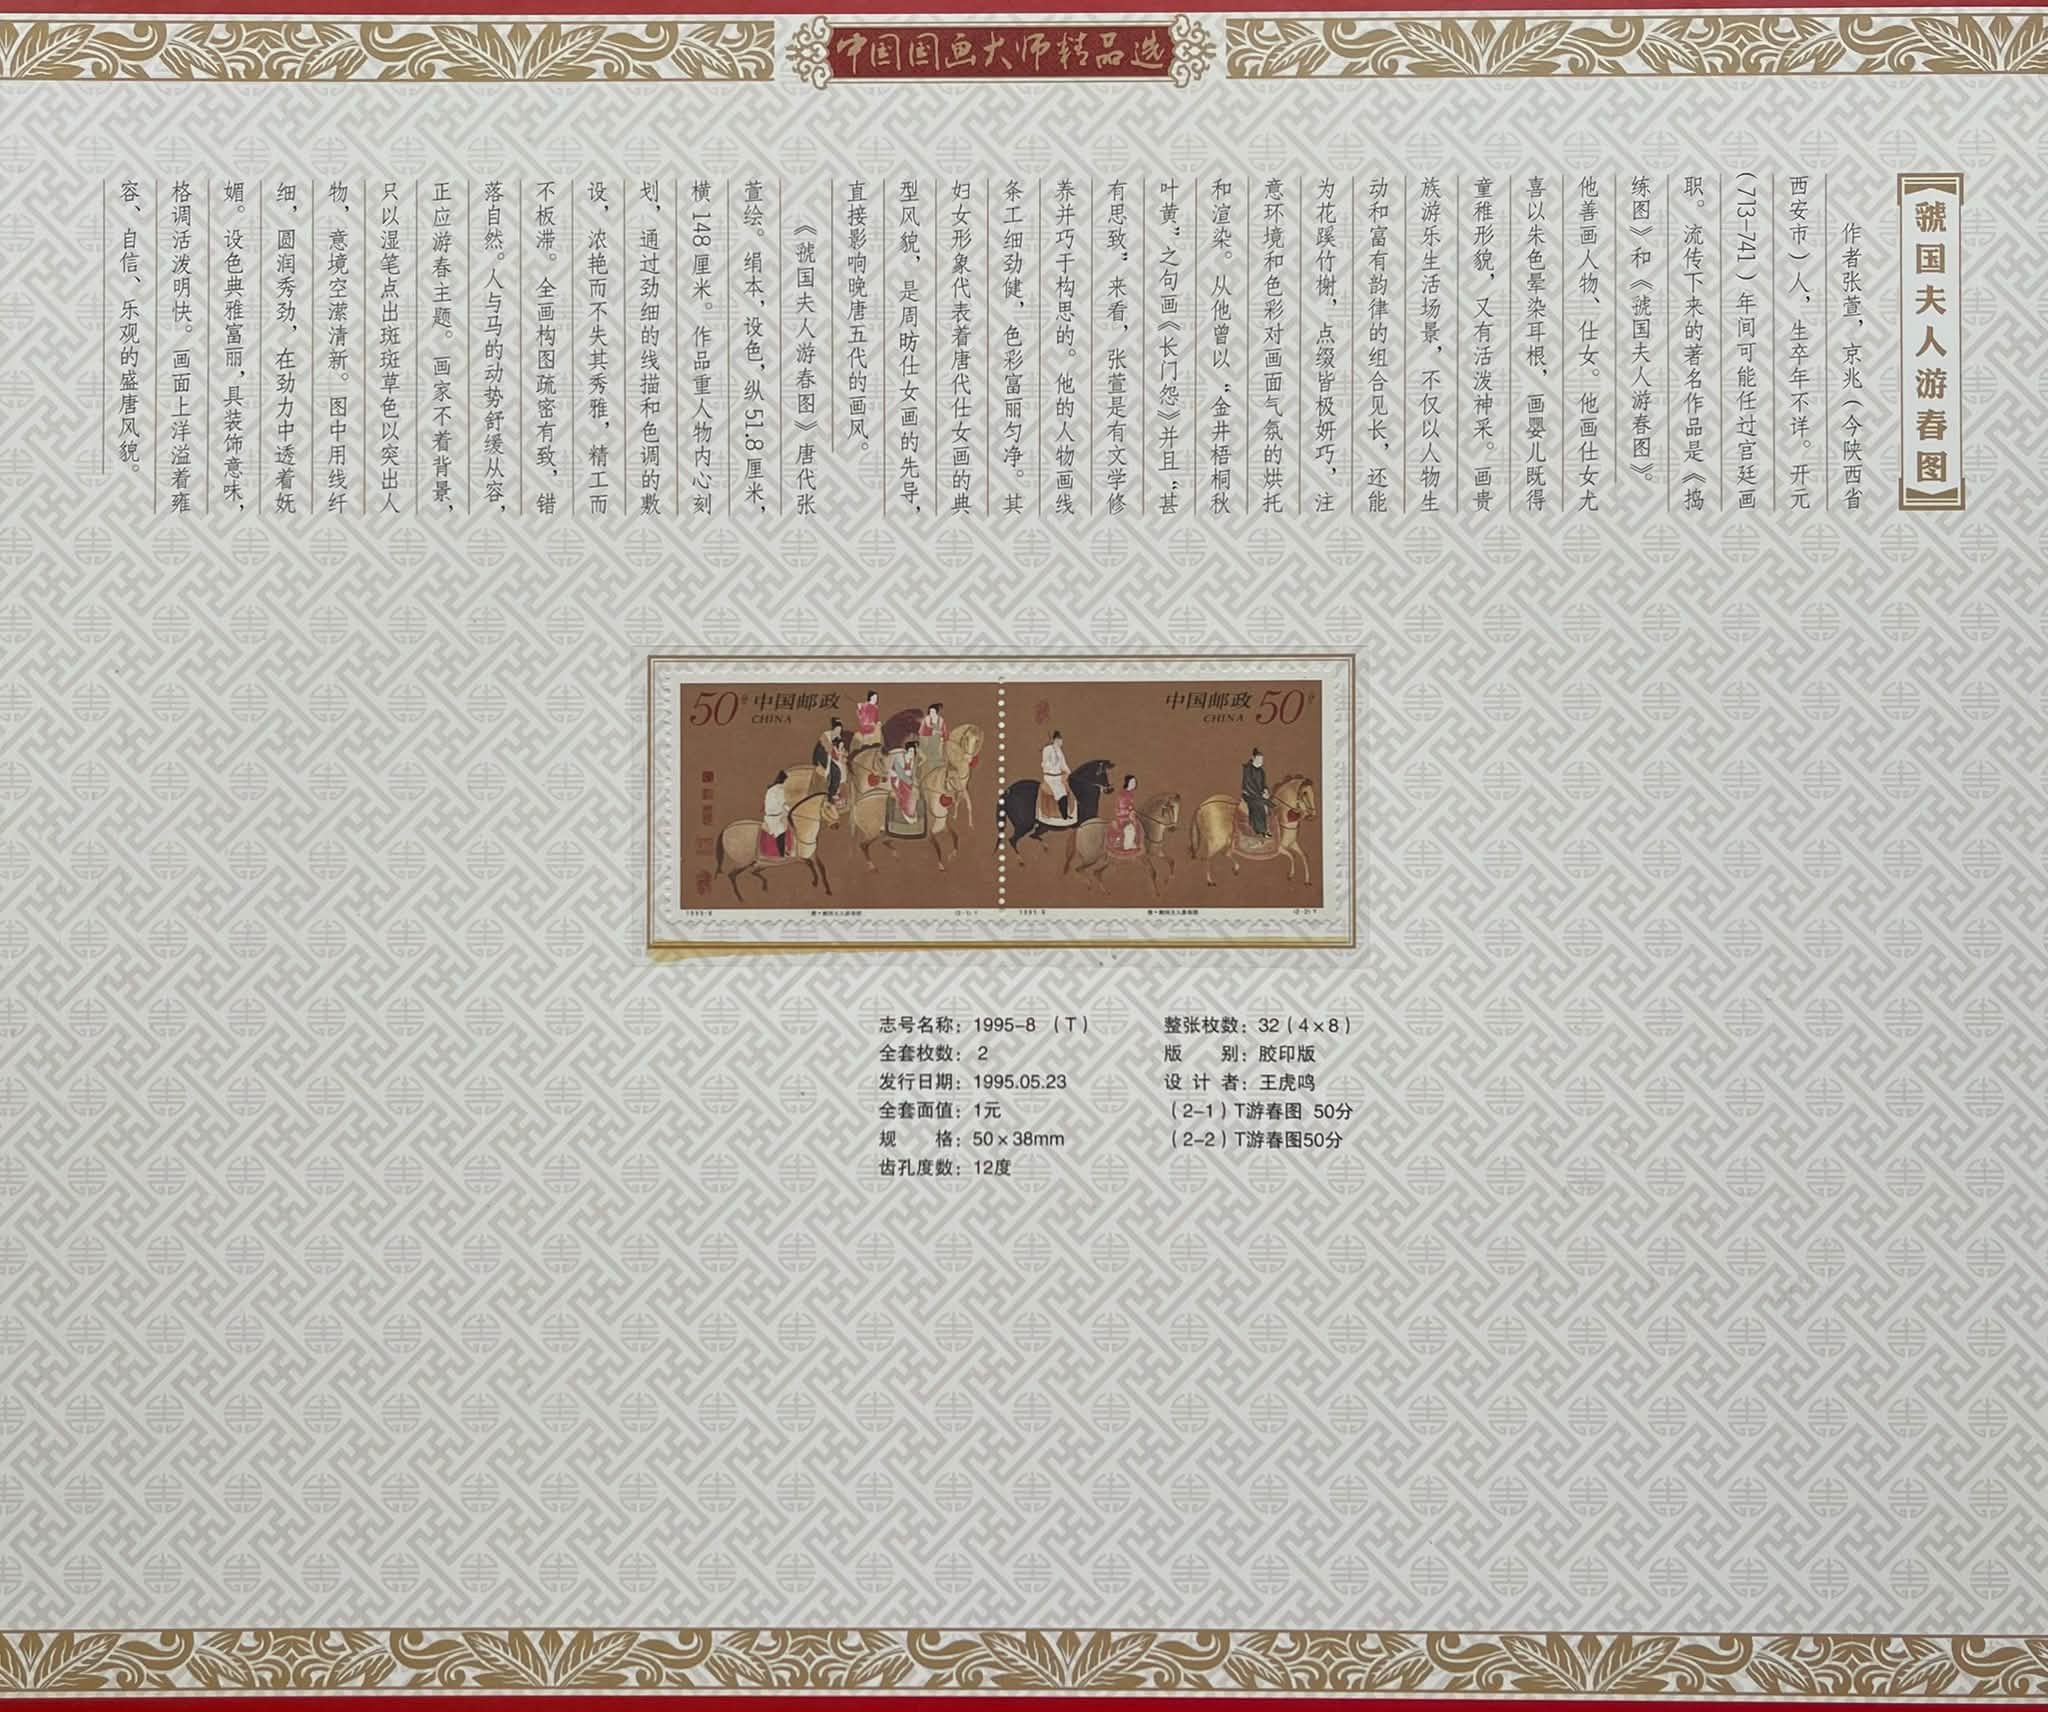 中国国画大师精品选
【虢国夫人游春图】
作者张萱，京兆（今陕西省
西安市）人，生卒年不详。开元
（713-741）年间可能任过宫廷画
职。流传下来的著名作品是《捣
练图》和《虢国夫人游春图》。
他善画人物、仕女。他画仕女尤
喜以朱色晕染耳根，画婴儿既得
童稚形貌，又有活泼神采。画贵
族游乐生活场景，不仅以人物生
动和富有韵律的组合见长，还能
为花蹊竹榭，点缀皆极妍巧，注
意环境和色彩对画面气氛的烘托
和渲染。从他曾以“金井梧桐秋
叶黄”之句画《长门怨》并且“甚
有思致”来看，张萱是有文学修
养并巧于构思的。他的人物画线
条工细劲健，色彩富丽匀净。其
妇女形象代表着唐代仕女画的典
型风貌，是周昉仕女画的先导，
直接影响晚唐五代的画风。
《虢国夫人游春图》唐代张
萱绘。绢本，设色，纵51.8厘米，
横148厘米。作品重人物内心刻
划，通过劲细的线描和色调的敷
设，浓艳而不失其秀雅，精工而
不板滞。全画构图疏密有致，错
落自然。人与马的动势舒缓从容，
正应游春主题。画家不着背景，
只以湿笔点出斑斑草色以突出人
物，意境空潆清新。图中用线纤
细，圆润秀劲，在劲力中透着妩
媚。设色典雅富丽，具装饰意味，
格调活泼明快。画面上洋溢着雍
容、自信、乐观的盛唐风貌。
50分 中国邮政
CHINA
中国邮政 50分
CHINA
1995-8 唐·虢国夫人游春图 (2-1)T
1995-8 唐·虢国夫人游春图 (2-2)T
志号名称：1995-8 （T）
全套枚数： 2
发行日期：1995.05.23
全套面值：1元
规　　格：50×38mm
齿孔度数：12度
整张枚数：32（4×8）
版　　别：胶印版
设 计 者：王虎鸣
（2-1）T游春图 50分
（2-2）T游春图50分